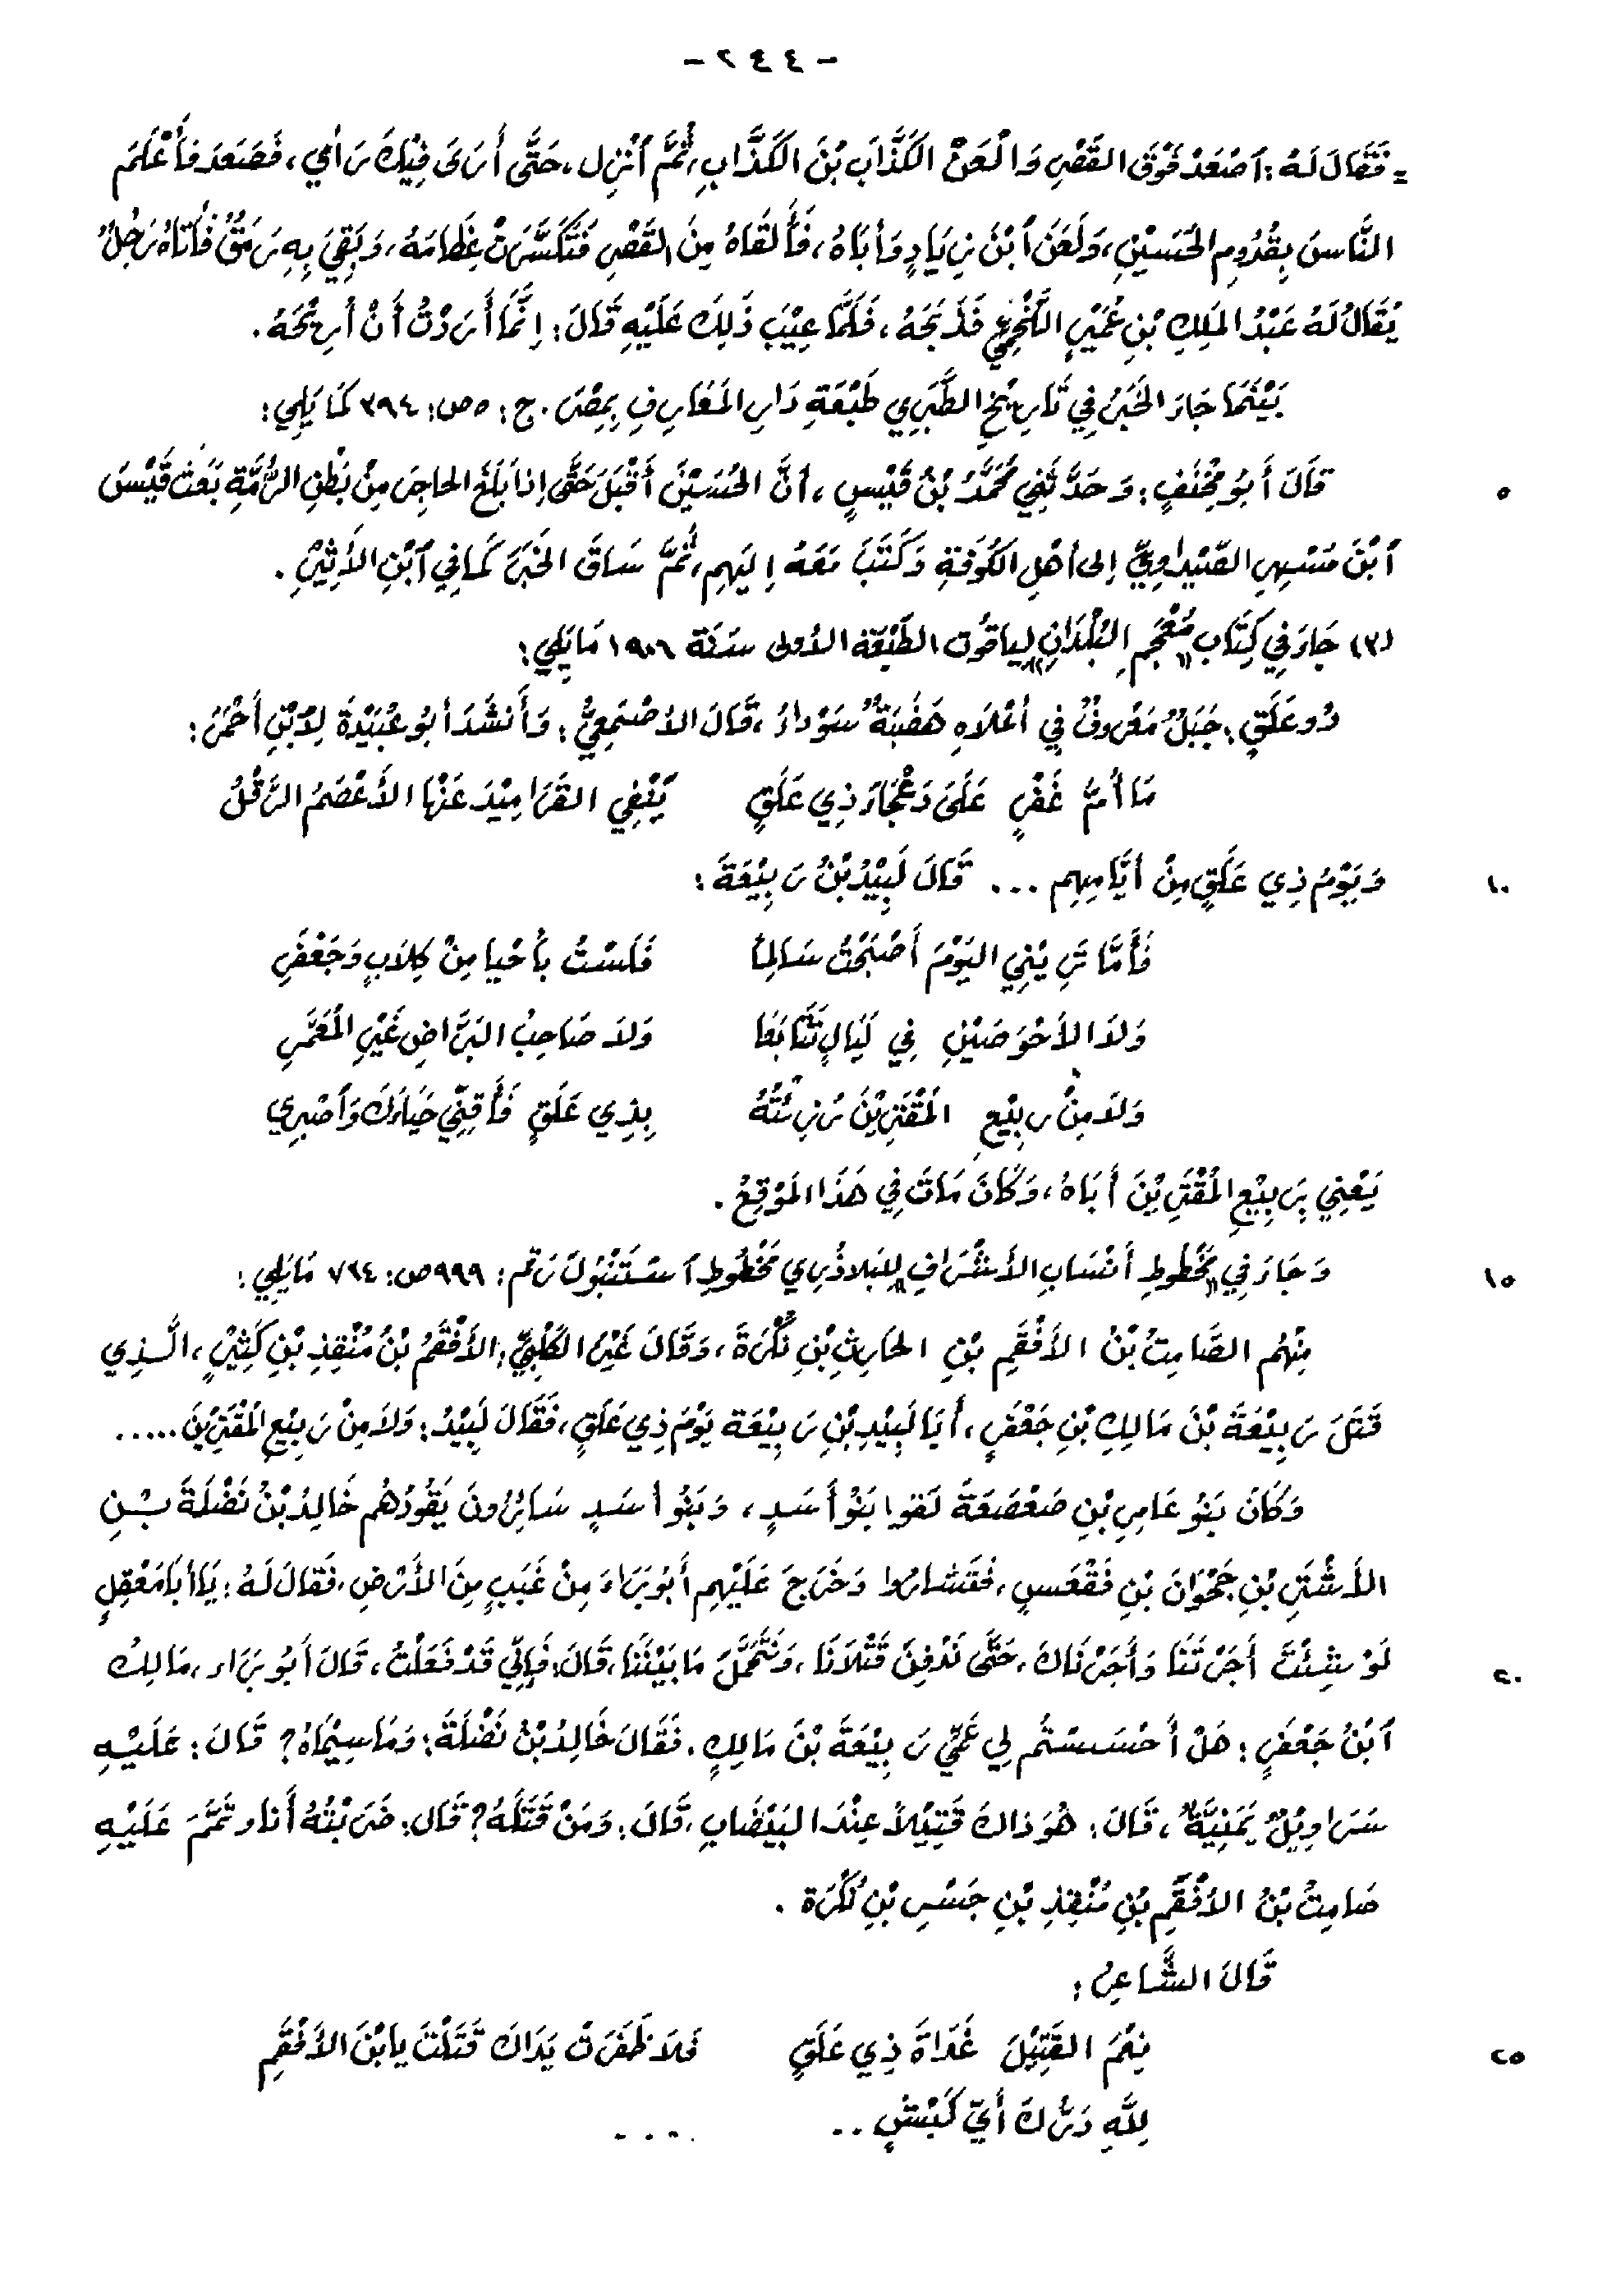 - ٢٤٤ -
= فَقَالَ لَهُ : ٱصْعَدْ فَوْقَ القَصْرِ وَالْعَنْ الكَذَّابَ بْنَ الكَذَّابِ، ثُمَّ ٱنْزِل، حَتَّى أَرَى فِيْكَ رَأْيِي، فَصَعَدَ فَأَعْلَمَ
النَّاسَ بِقُدُومِ الحُسَيْنِ، وَلَعَنَ ٱبْنَ زِيَادٍ وَأَبَاهُ، فَأَلْقَاهُ مِنَ القَصْرِ فَتَكَسَّرَتْ عِظَامَهُ، وَبَقِيَ بِهِ رَمَقٌ فَأَتَاهُ رَجُلٌ
يُقَالُ لَهُ عَبْدُ المَلِكِ بْنِ عُمَيْرٍ اللَّخْمِيُّ فَذَبَحَهُ، فَلَمَّا عِيْبَ ذَلِكَ عَلَيْهِ قَالَ: إِنَّمَا أَرَدْتُ أَنْ أُرِيْحَهُ .
بَيْنَمَا جَاءَ الخَبَرُ فِي تَارِيْخِ الطَّبَرِي طَبْعَةِ دَارِ المَعَارِفِ بِمِصْرَ . ج: ٥ ص: ٣٩٤ كَمَا يَلِي:
٥ قَالَ أَبُو مِخْنَفٍ: وَحَدَّثَنِي مُحَمَّدُ بْنُ قَيْسٍ، أَنَّ الحُسَيْنَ أَقْبَلَ حَتَّى إِذَا بَلَغَ الحاجِرَ مِنْ بَطْنِ الرُّمَّةِ بَعَثَ قَيْسَ
ٱبْنَ مُسْهِرِ الصَّيْدَاوِيَّ إِلى أَهْلِ الكُوفَةِ وَكَتَبَ مَعَهُ إِلَيْهِم، ثُمَّ سَاقَ الخَبَرَ كَمَا فِي ٱبْنِ الأَثِيْرِ .
(٣) جَاءَ فِي كِتَابِ «مُعْجَمِ البُلْدَانِ» لِياقُوت الطَّبْعَة الأولى سَنَة ١٩٠٦ مَا يَلِي:
ذُو عَلَقٍ: جَبَلٌ مَعْرُوفٌ فِي أَعْلَاهِ هَضْبَةٌ سَوْدَاءُ، قَالَ الأَصْمَعِيُّ: وَأَنشَدَ أبُو عُبَيْدَةَ لِٱبْنِ أَحْمَرَ:
مَا أُمُّ غَفْرٍ عَلَى دَعْجَاءَ ذِي عَلَقٍ يَنْفِي القَرَامِيْدَ عَنْهَا الأَعْصَمُ الوَقْلُ
١٠ وَيَوْمُ ذِي عَلَقٍ مِنْ أَيَّامِهِم ... قَالَ لَبِيْدُ بْنُ رَبِيْعَةَ:
فَأَمَّا تَرِيْنِي اليَوْمَ أَصْبَحْتُ سَالِماً فَلَسْتُ بِأَحْيا مِنْ كِلَابٍ وَجَعْفَرِ
وَلَا الأَحْوَصَيْنِ فِي لَيَالٍ تَتَابَعَا وَلَا صَاحِبُ البَرَّاضِ غَيْرِ المُغَمَّرِ
وَلَا مِنْ رَبِيْعِ المُقْتَرِيْنَ رُزِئْتُهُ بِذِي عَلَقٍ فَٱقِنِّي حَيَاءَكَ وَٱصْبِرِي
يَعْنِي بِرَبِيْعِ المُقْتَرِيْنَ أَبَاهُ، وَكَانَ مَاتَ فِي هَذَا المَوْقِعُ .
١٥ وَجَاءَ فِي «مَخْطُوطِ أَنْسَابِ الأَشْرَافِ» لِلبَلاذُرِي مَخْطُوطِ ٱسْتَنْبُولَ رَقَم: ٩٩٩ ص: ٧٢٤ مَا يَلِي:
مِنْهُم الصَّامِتُ بْنُ الأَفْقَمِ بْنِ الحَارِثِ بْنِ نُكْرَةَ، وَقَالَ غَيْرُ الكَلْبِيِّ: الأَفْقَمُ بْنُ مُنْقِذِ بْنِ كَثِيْرٍ، الَّذِي
قَتَلَ رَبِيْعَةَ بْنَ مَالِكِ بْنِ جَعْفَرٍ، أَبَا لَبِيْدِ بْنِ رَبِيْعَة يَوْمَ ذِي عَلَقٍ، فَقَالَ لَبِيْدُ: وَلَا مِنْ رَبِيْعِ المُقْتَرِيْنَ .....
وَكَانَ بَنُو عَامِرِ بْنِ صَعْصَعَةَ لَقوا بَنُو أَسَدٍ، وَبَنُو أسَدٍ سَائِرُونَ يَقُودُهُم خَالِدُ بْنُ نَضْلَةَ بْنِ
الأَشْتَرِ بْنِ جَحْوَانَ بْنِ فَقْعَسٍ، فَتَشَارُوا وَخَرَجَ عَلَيْهِم أَبُو بَرَاءَ مِنْ غَيَبٍ مِنَ الأَرْضِ، فَقَالَ لَهُ: يَا أَبَا مَعْقِلٍ
٢٠ لَوْ شِئْتَ أَجَرْتَنَا وَأَجَرْنَاكَ، حَتَّى نَدْفِنَ قَتْلَانَا، وَنَتَحَمَّلَ مَا بَيْنَنَا، قَالَ: فَإِنِّي قَدْ فَعَلْتُ، قَالَ أَبُو بَرَاء، مَالِكُ
ٱبْنُ جَعْفَرٍ: هَلْ أَحْسَسْتُم لِي عَمِّي رَبِيْعَةَ بْنَ مَالِكٍ. فَقَالَ خَالِدُ بْنُ نَضْلَةَ: وَمَا سِيْمَاهُ؟ قَالَ: عَلَيْهِ
سَرَاوِيْلٌ يَمَنِيَّةٌ، قَالَ: هُوَ ذَاكَ قَتِيْلاً عِنْدَ البَيْضَاءِ، قَالَ: وَمَنْ قَتَلَهُ؟ قَالَ: ضَرَبْتُهُ أَنا وتَمَّمَ عَلَيْهِ
صَامِتُ بْنُ الأَفْقَمِ بْنِ مُنْقِذِ بْنِ جَسْرِ بْنِ نُكْرَة .
قَالَ الشَّاعِرُ:
٢٥ نِعْمَ القَتِيْلَ غَدَاةَ ذِي عَلَقٍ فَلَا ظَفَرَتْ يَدَاكَ قَتَلْتَ يا ٱبْنَ الأَفْقَمِ
لِلّهِ دَرُّكَ أَيَّ كَبْشٍ .. ....